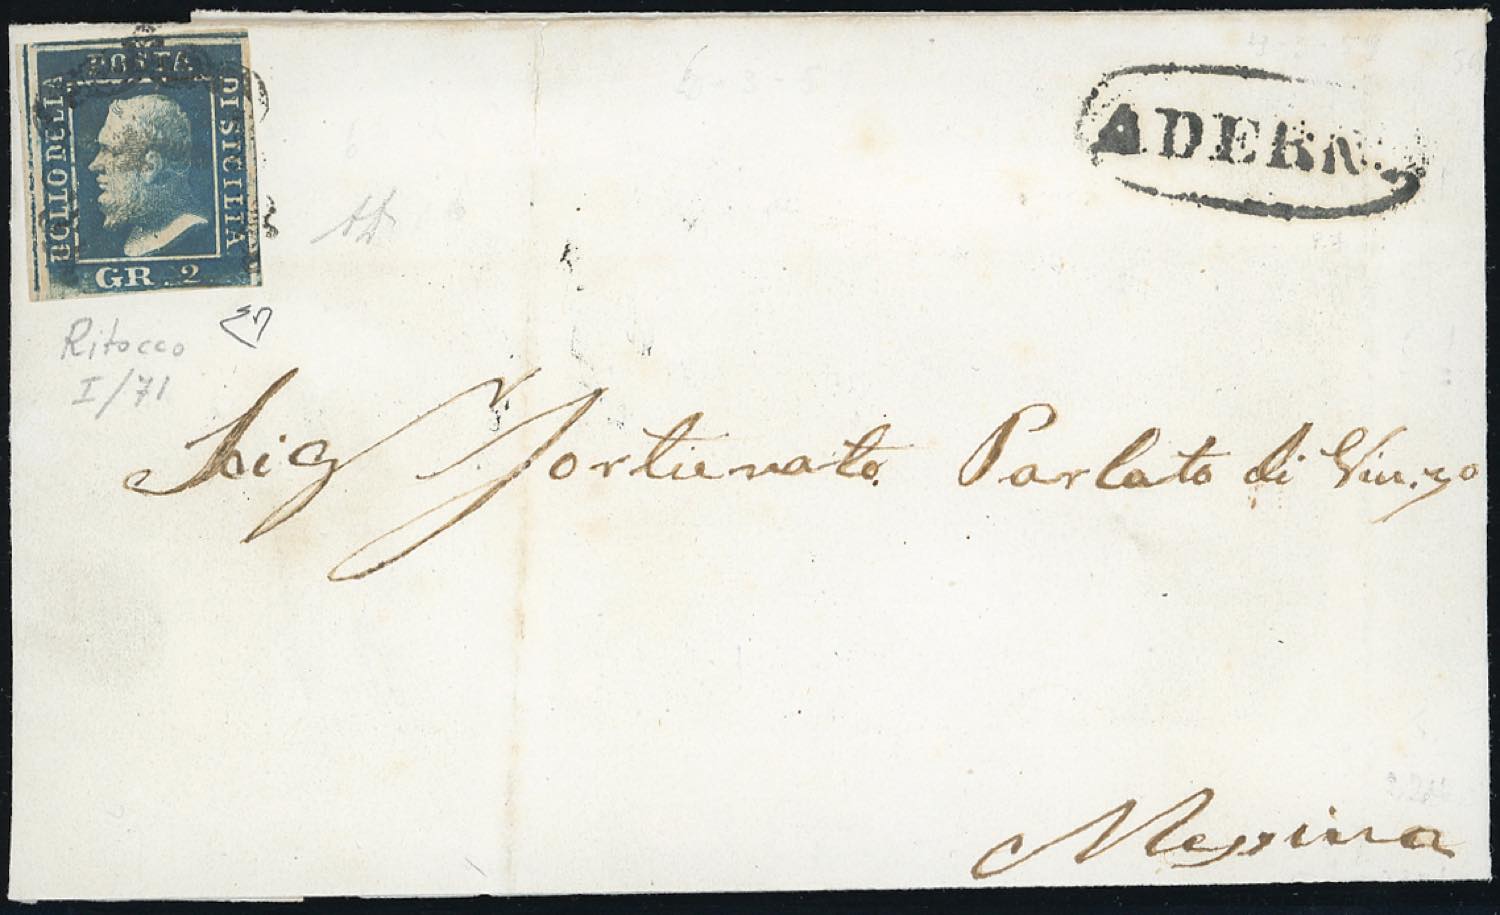 POSTA
BOLLO DELLA
DI SICILIA
GR. 2
ADERNÒ
Ritocco
I/71
Sig Fortunato Parlato di Vin.zo
Messina